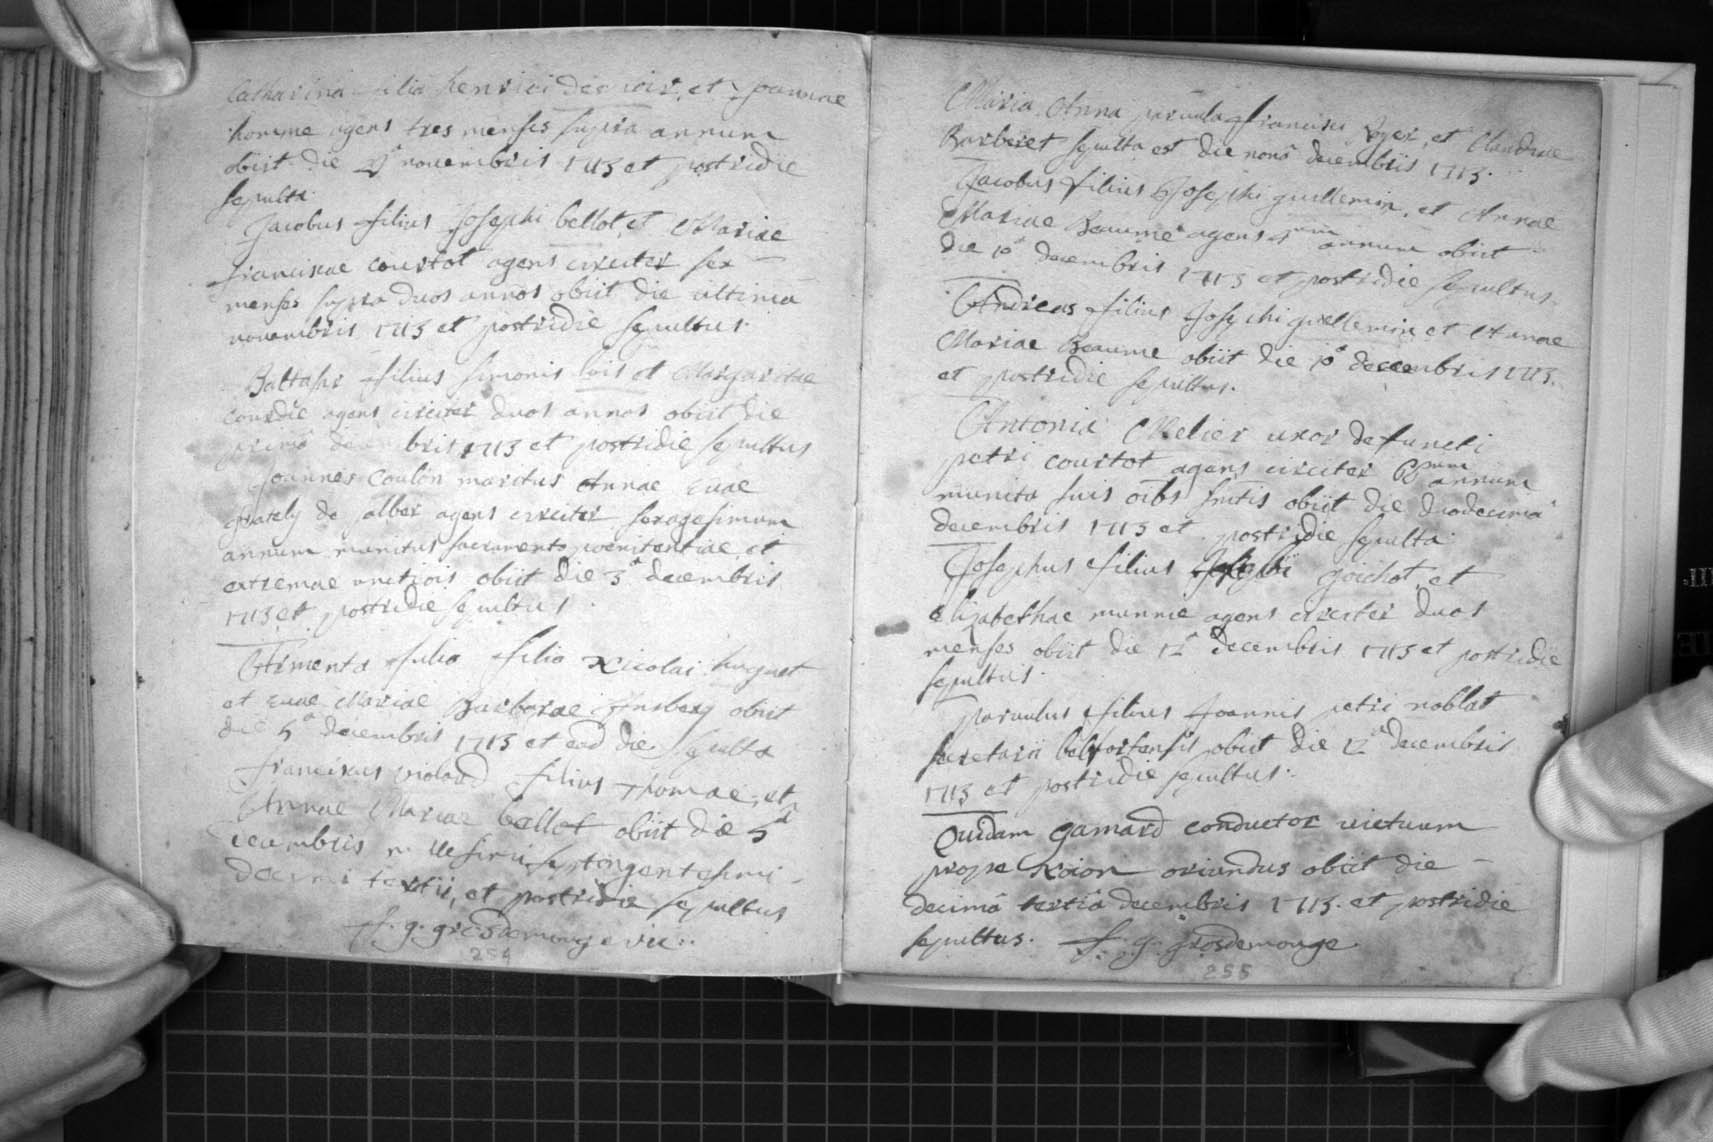 Catharina filia henrici et Joannae
homme agens tres menses supra annum
obiit die novembris 1713 et postridie
sepulta
Jacobus filius Josephi bellot, et Mariae
franciscae courtot agens circiter sex
menses supra duos annos obiit die ultima
novembris 1713 et postridie sepultus.
Baltasar filius simonis lois et Margaritae
courdie agens circiter duos annos obiit die
primâ bris 1713 et postridie sepultus
Joannes coulon maritus Annae Evae
de jalber agens circiter sexagesimum
annum munitus sacramento poenitentiae, et
extremae unctiois obiit die 3â decembris
1713 et postridie sepultus.
Armenta Julia filia Nicolai huguet
et Evae Mariae Barbarae obiit
die 5â decembris 1713 et eâd die sepulta
franciscus violand filius Thomae, et
Annae Mariae bellot obiit die 5â
decembris millesimi septingentesimi
decimi tertii, et postridie sepultus
f. g. grosdemouge vic.
254
Maria Anna parvula francisci et Claudiae
Barberet sepulta est die nonâ decembris 1713.
Jacobus filius Josephi guillemin, et Annae
Mariae Beaume agens 4um annum obiit
die 10â decembris 1713 et postridie sepultus.
Andreas filius Josephi guillemin et Annae
Mariae Beaume obiit die 10â decembris 1713.
et postridie sepultus.
Antonia Melier uxor defuncti
petri courtot agens circiter annum
munita suis oibs sntis obiit die duodecimâ
decembris 1713 et postridie sepulta
Josephus filius Josephi goichot, et
Elizabethae munnie agens circiter duos
menses obiit die 12â decembris 1713 et postridie
sepultus.
parvulus filius Joannis petri noblat
secretarii belfortensis obiit die 12â decembris
1713 et postridie sepultus.
Quidam Gamard conductor victuum
prope Noion oriundus obiit die
decimâ tertiâ decembris 1713. et postridie
sepultus. f. g. grosdemouge.
255